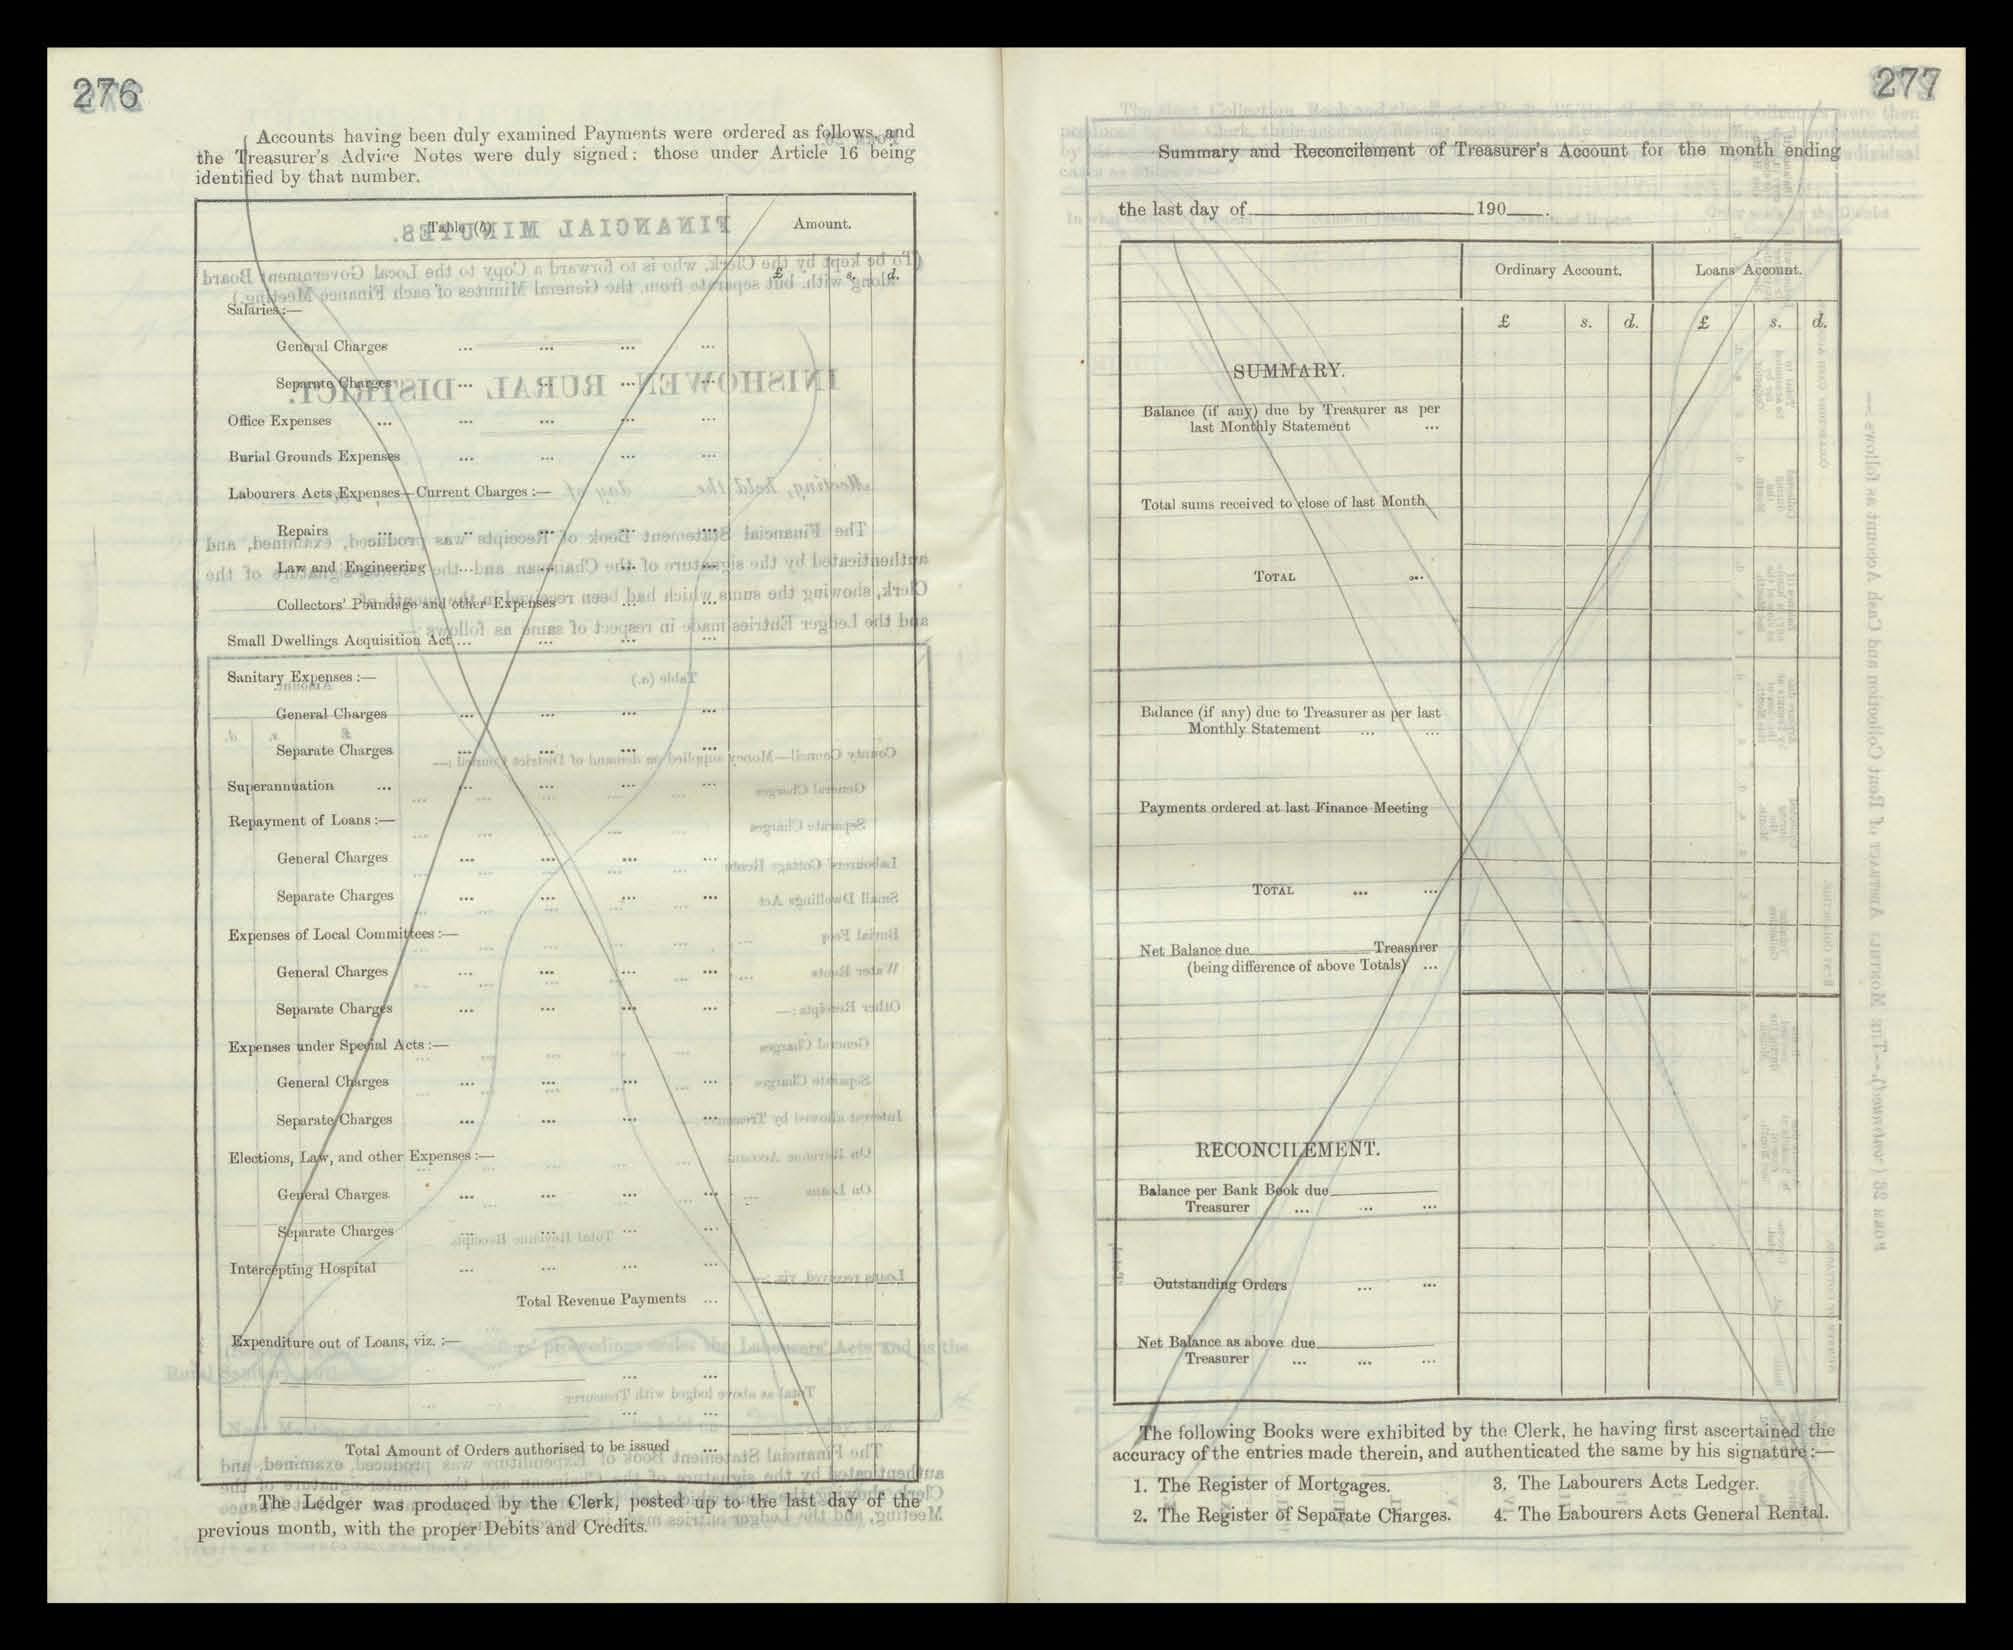 276
Accounts having been duly examined Payments were ordered as follows, and
the Treasurer's Advice Notes were duly signed: those under Article 16 being
identified by that number.
Table (b) Amount.
£ s. d.
Salaries:—
General Charges ... ... ... ...
Separate Charges ... ... ... ...
Office Expenses ... ... ... ... ...
Burial Grounds Expenses ... ... ... ...
Labourers Acts Expenses—Current Charges :—
Repairs ... ... ... ... ...
Law and Engineering ... ... ... ...
Collectors' Poundage and other Expenses ... ...
Small Dwellings Acquisition Act ... ... ... ...
Sanitary Expenses :—
General Charges ... ... ... ...
Separate Charges ... ... ... ...
Superannuation ... ... ... ... ...
Repayment of Loans :—
General Charges ... ... ... ...
Separate Charges ... ... ... ...
Expenses of Local Committees :—
General Charges ... ... ... ...
Separate Charges ... ... ... ...
Expenses under Special Acts :—
General Charges ... ... ... ...
Separate Charges ... ... ... ...
Elections, Law, and other Expenses :—
General Charges ... ... ... ...
Separate Charges ... ... ... ...
Intercepting Hospital ... ... ... ...
Total Revenue Payments ...
Expenditure out of Loans, viz. :—
... ...
... ...
Total Amount of Orders authorised to be issued ...
The Ledger was produced by the Clerk, posted up to the last day of the
previous month, with the proper Debits and Credits.
277
Summary and Reconcilement of Treasurer's Account for the month ending
the last day of 190 .
Ordinary Account. Loans Account.
£ s. d. £ s. d.
SUMMARY.
Balance (if any) due by Treasurer as per
last Monthly Statement ...
Total sums received to close of last Month
TOTAL ...
Balance (if any) due to Treasurer as per last
Monthly Statement ... ...
Payments ordered at last Finance Meeting
TOTAL ... ...
Net Balance due Treasurer
(being difference of above Totals) ...
RECONCILEMENT.
Balance per Bank Book due
Treasurer ... ... ...
Outstanding Orders ... ...
Net Balance as above due
Treasurer ... ... ...
The following Books were exhibited by the Clerk, he having first ascertained the
accuracy of the entries made therein, and authenticated the same by his signature :—
1. The Register of Mortgages. 3. The Labourers Acts Ledger.
2. The Register of Separate Charges. 4. The Labourers Acts General Rental.